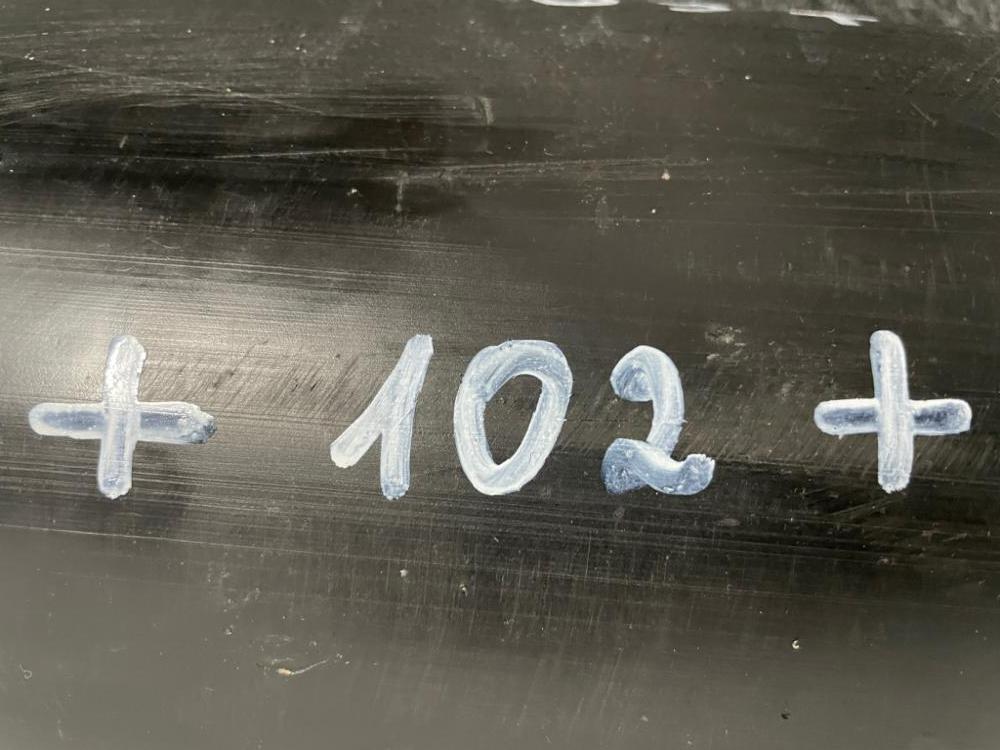 + 102 +